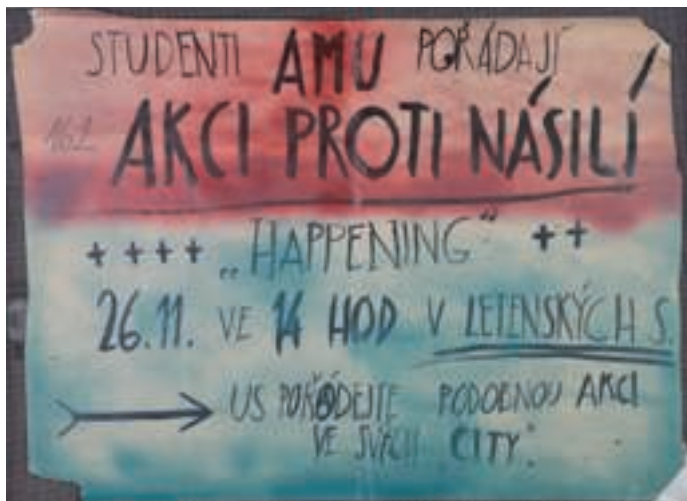 STUDENTI AMU POŘÁDAJÍ
162
AKCI PROTI NÁSILÍ
++++ „HAPPENING“ ++
26.11. VE 14 HOD V LETENSKÝCH S.
US POŘÁDEJTE PODOBNOU AKCI
VE SVÝCH CITY.